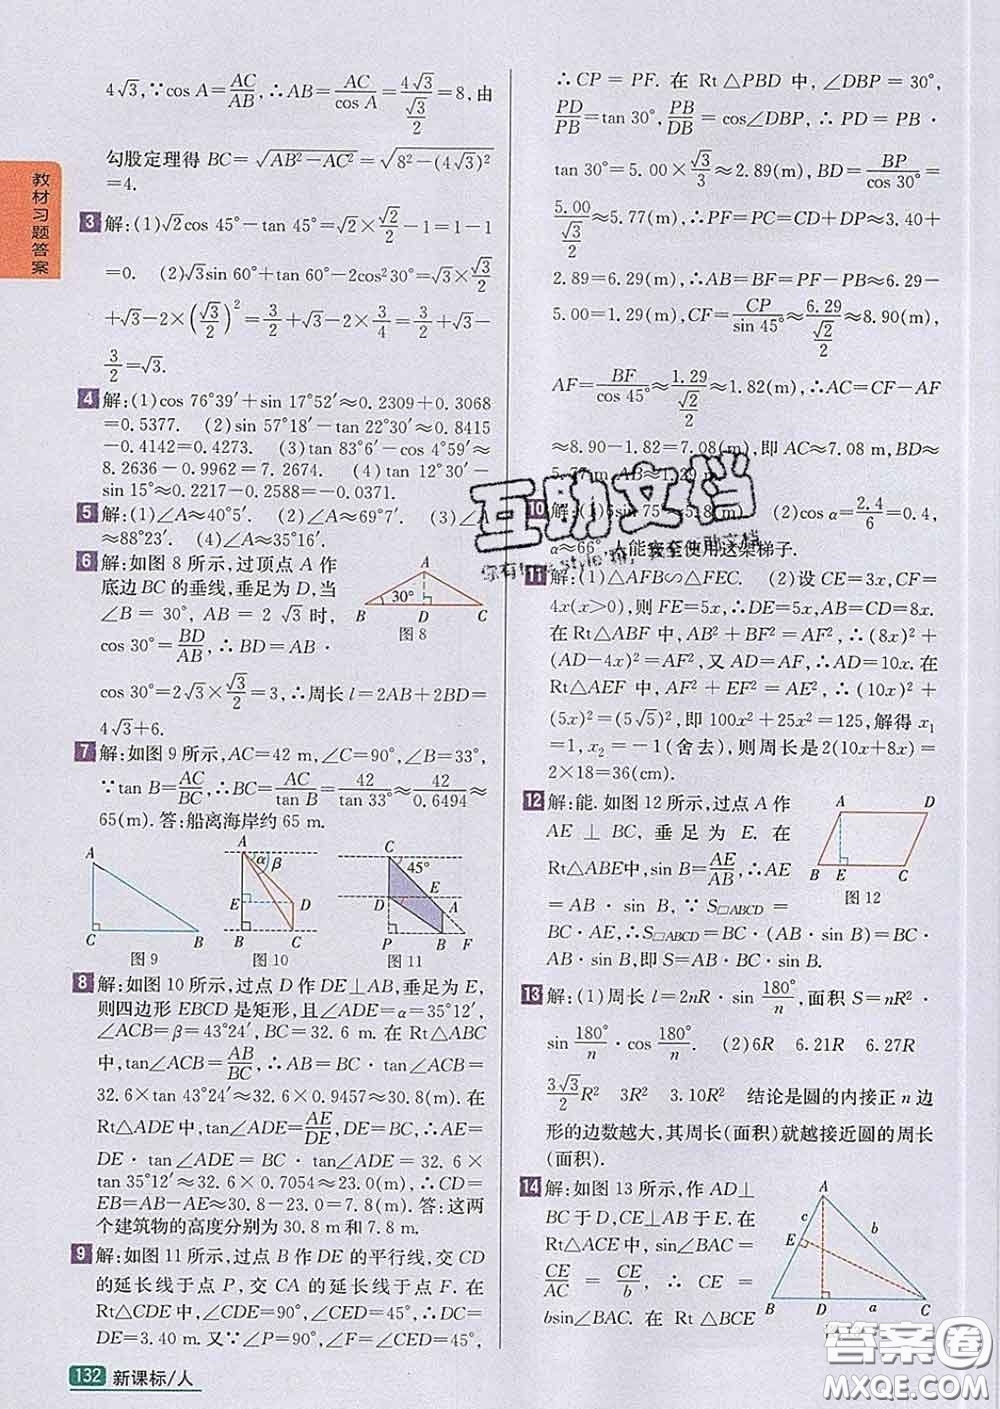 教材习题答案
4√3,∵cos A=AC/AB,∴AB=AC/cos A=4√3/(√3/2)=8,由
勾股定理得 BC=√(AB²-AC²)=√(8²-(4√3)²)
=4.
3 解:(1)√2cos 45°-tan 45°=√2×√2/2-1=1-1
=0. (2)√3sin 60°+tan 60°-2cos²30°=√3×√3/2
+√3-2×(√3/2)²=3/2+√3-2×3/4=3/2+√3-
3/2=√3.
4 解:(1)cos 76°39′+sin 17°52′≈0.2309+0.3068
=0.5377. (2)sin 57°18′-tan 22°30′≈0.8415
-0.4142=0.4273. (3)tan 83°6′-cos 4°59′≈
8.2636-0.9962=7.2674. (4)tan 12°30′-
sin 15°≈0.2217-0.2588=-0.0371.
5 解:(1)∠A≈40°5′. (2)∠A≈69°7′. (3)∠A
≈88°23′. (4)∠A≈31°.
6 解:如图 8 所示,过顶点 A 作
底边 BC 的垂线,垂足为 D,当
∠B = 30°, AB = 2√3 时,
cos 30°=BD/AB,∴BD=AB·
cos 30°=2√3×√3/2=3,∴周长 l=2AB+2BD=
4√3+6.
A
30°
B D C
图 8
7 解:如图 9 所示,AC=42 m,∠C=90°,∠B=33°,
∵tan B=AC/BC,∴BC=AC/tan B=42/tan 33°≈42/0.6494≈
65(m).答:船离海岸约 65 m.
A
C B
图 9
A α β
E D
B C
图 10
C 45°
E
D A
P B F
图 11
8 解:如图 10 所示,过点 D 作 DE⊥AB,垂足为 E,
则四边形 EBCD 是矩形,且∠ADE=α=35°12′,
∠ACB=β=43°24′,BC=32.6 m.在 Rt△ABC
中,tan∠ACB=AB/BC,∴AB=BC·tan∠ACB=
32.6×tan 43°24′≈32.6×0.9457≈30.8(m).在
Rt△ADE 中,tan∠ADE=AE/DE,DE=BC,∴AE=
DE·tan∠ADE=BC·tan∠ADE=32.6×
tan 35°12′≈32.6×0.7054≈23.0(m),∴CD=
EB=AB-AE≈30.8-23.0=7.8(m).答:这两
个建筑物的高度分别为 30.8 m和 7.8 m.
9 解:如图 11 所示,过点 B 作 DE 的平行线,交 CD
的延长线于点 P,交 CA 的延长线于点 F.在
Rt△CDE 中,∠CDE=90°,∠CED=45°,∴DC=
DE=3.40 m.又∵∠P=90°,∠F=∠CED=45°,
∴CP=PF.在 Rt△PBD 中,∠DBP=30°,
PD/PB=tan 30°,PB/DB=cos∠DBP,∴PD=PB·
tan 30°=5.00×√3/3≈2.89(m),BD=BP/cos 30°=
5.00/(√3/2)≈5.77(m),∴PF=PC=CD+DP≈3.40+
2.89=6.29(m),∴AB=BF=PF-PB≈6.29-
5.00=1.29(m),CF=CP/sin 45°≈6.29/(√2/2)≈8.90(m),
AF=BF/cos 45°≈1.29/(√2/2)≈1.82(m),∴AC=CF-AF
≈8.90-1.82=7.08(m),即 AC≈7.08 m,BD≈
5.77 m,AB≈1.29 m.
10 (2)cos α=2.4/6=0.4,
α≈66°,人能安全使用这架梯子.
11 解:(1)△AFB∽△FEC. (2)设 CE=3x,CF=
4x(x>0),则 FE=5x,∴DE=5x,AB=CD=8x.
在 Rt△ABF 中,AB²+BF²=AF²,∴(8x)²+
(AD-4x)²=AF²,又 AD=AF,∴AD=10x.在
Rt△AEF 中,AF²+EF²=AE²,∴(10x)²+
(5x)²=(5√5)²,即 100x²+25x²=125,解得 x₁
=1,x₂=-1(舍去),则周长是 2(10x+8x)=
2×18=36(cm).
12 解:能.如图 12 所示,过点 A 作
AE⊥BC,垂足为 E.在
Rt△ABE中,sin B=AE/AB,∴AE
=AB·sin B,∵S▱ABCD=
BC·AE,∴S▱ABCD=BC·(AB·sin B)=BC·
AB·sin B,即 S=AB·BC·sin B.
A D
B E C
图 12
13 解:(1)周长 l=2nR·sin 180°/n,面积 S=nR²·
sin 180°/n·cos 180°/n. (2)6R 6.21R 6.27R
3√3/2R² 3R² 3.10R² 结论是圆的内接正 n 边
形的边数越大,其周长(面积)就越接近圆的周长
(面积).
14 解:如图 13 所示,作 AD⊥
BC于 D,CE⊥AB于 E.在
Rt△ACE 中,sin∠BAC=
CE/AC=CE/b,∴CE=
bsin∠BAC.在 Rt△BCE
A
c b
E
B D a C
互助文档
132 新课标/人
答案圈
MXQE.COM